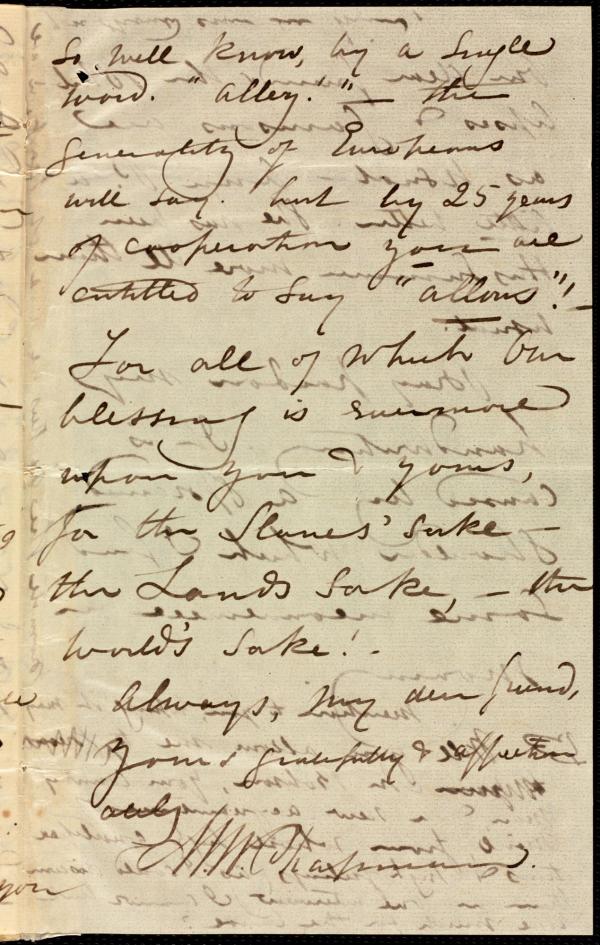 so well know, by a single
word. "allez!" — the
generality of Europeans
will say. but by 25 years
of cooperation you are
entitled to say "allons"! —
For all of which our
blessing is evermore
upon you & yours,
for the Slaves' sake —
the Lands sake, — the
world's sake! -
Always, my dear friend,
yours gratefully & affection
ately
M. W. Chapman.
you